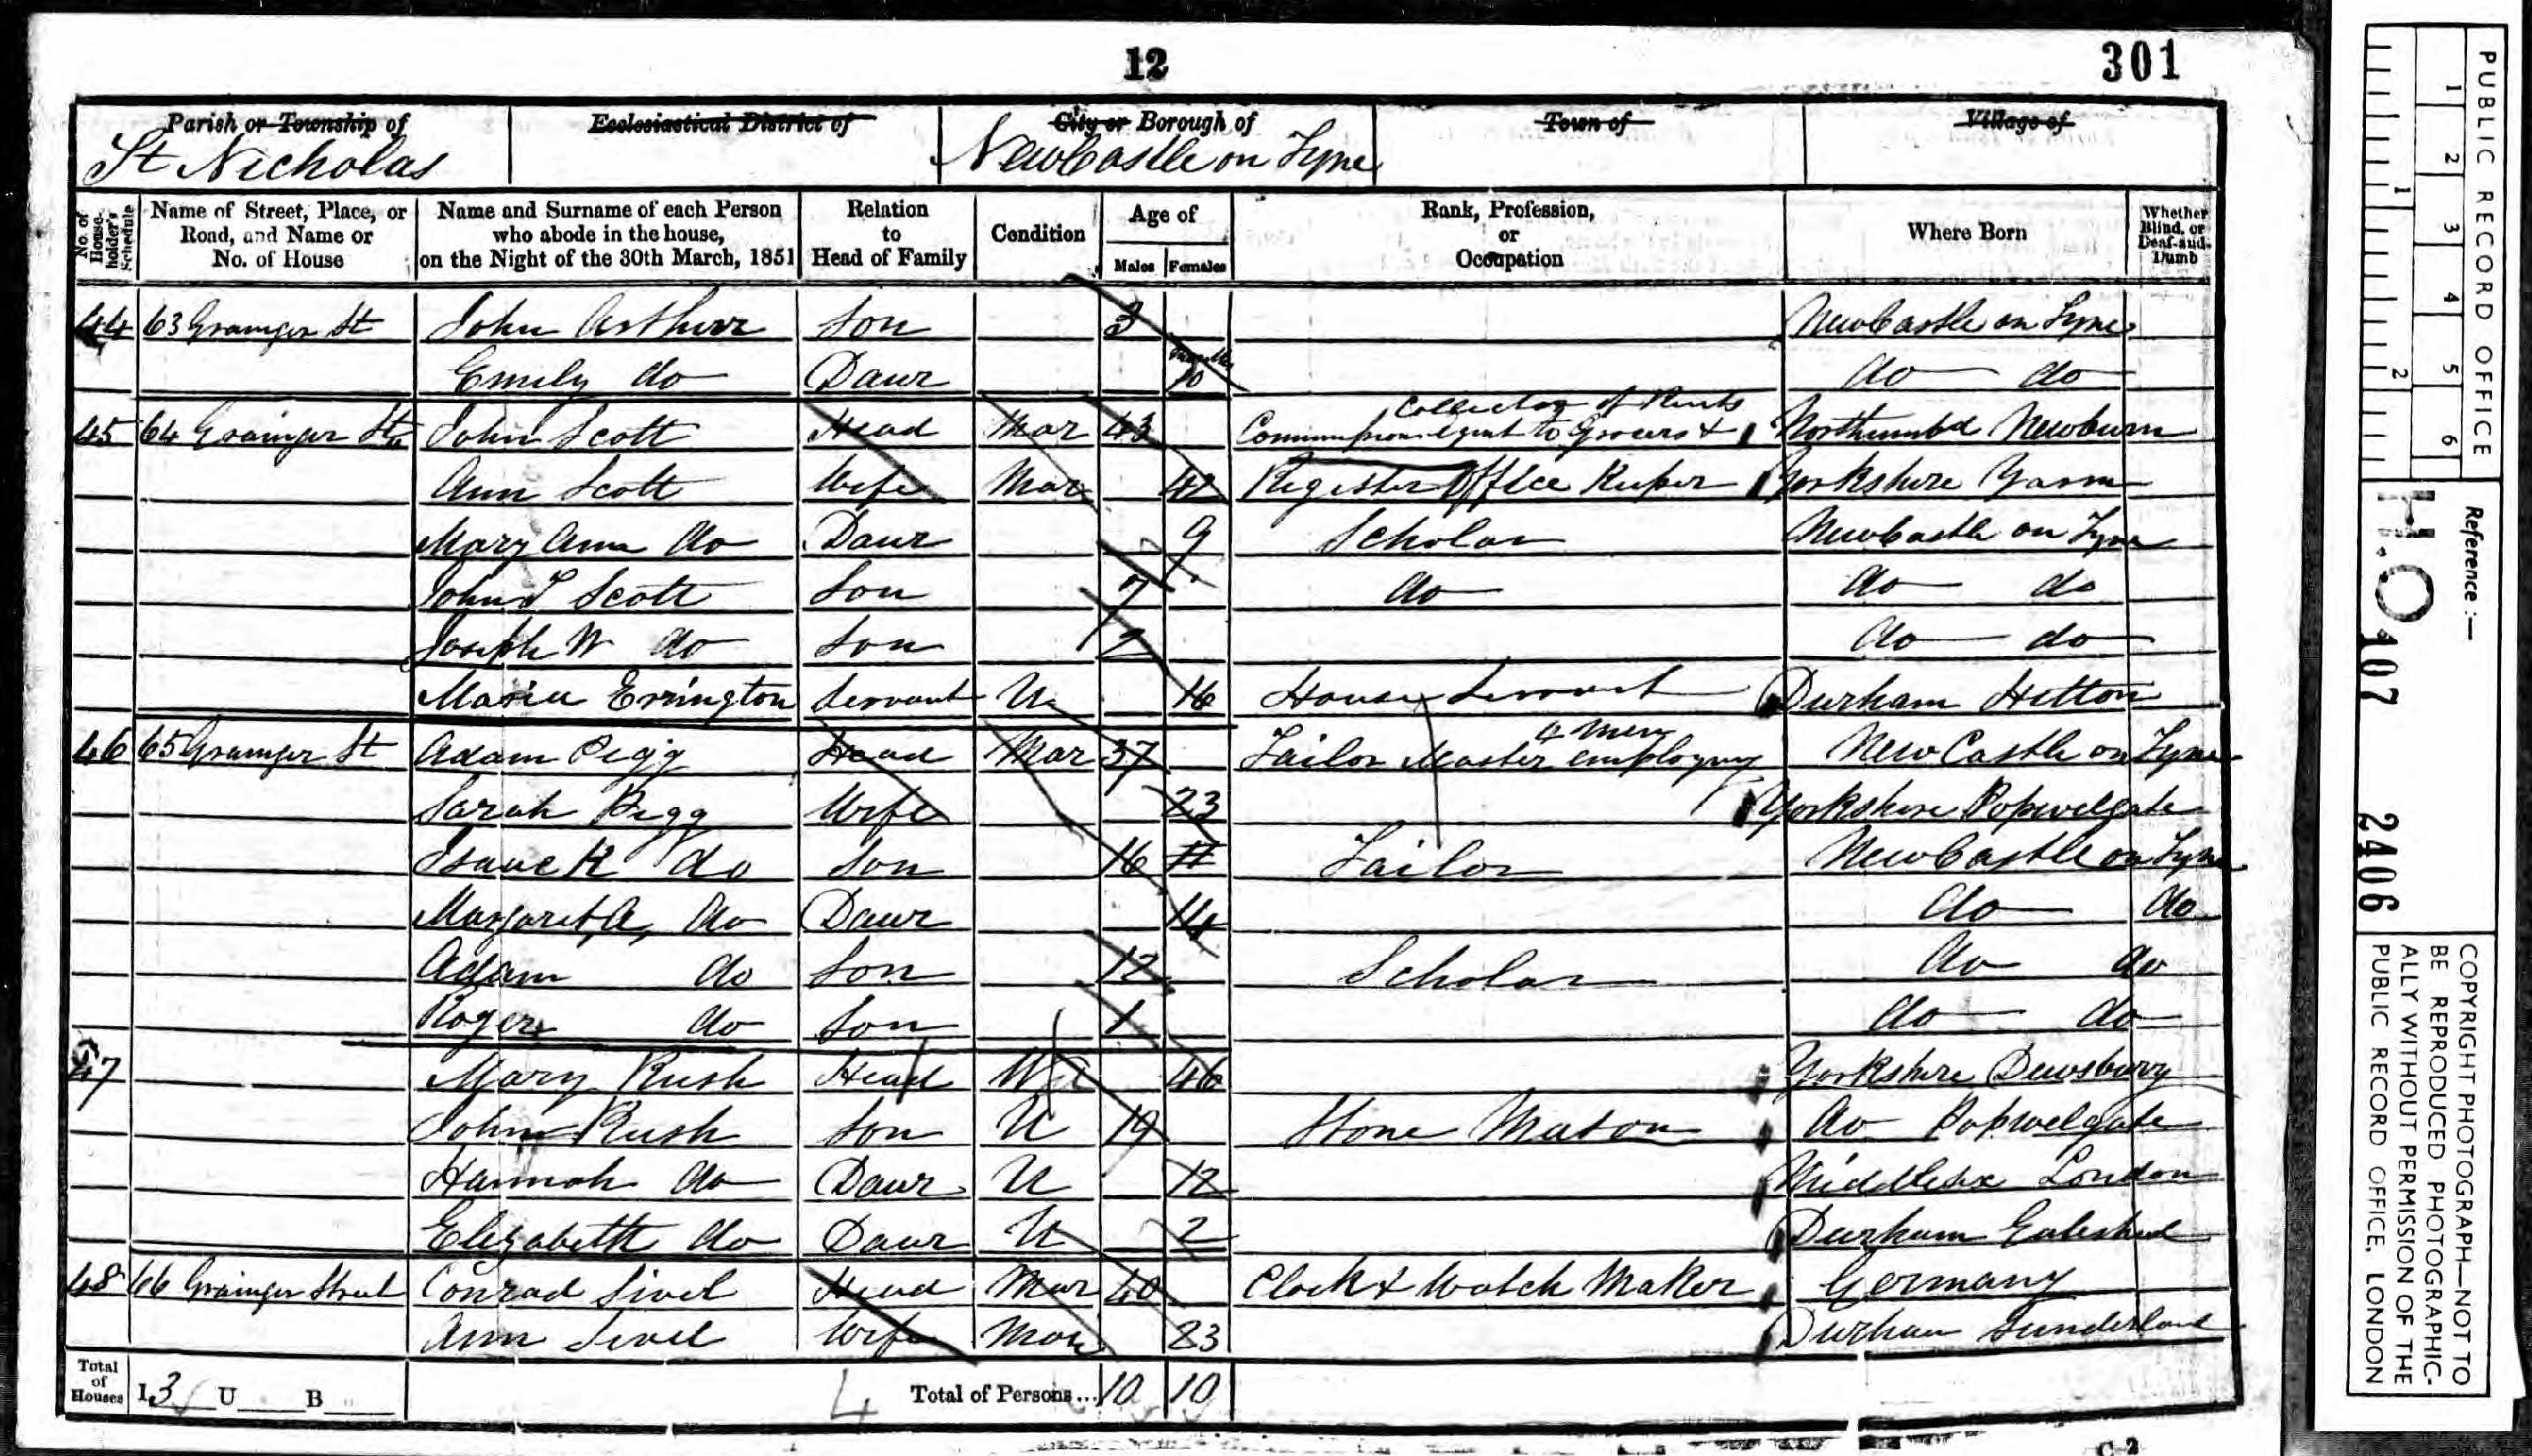 12
301
Parish or Township of
St Nicholas
Ecclesiastical District of
City or Borough of
NewCastle on Tyne
Town of
Village of
No. of House-holder's Schedule
Name of Street, Place, or Road, and Name or No. of House
Name and Surname of each Person who abode in the house, on the Night of the 30th March, 1851
Relation to Head of Family
Condition
Age of
Males
Females
Rank, Profession, or Occupation
Where Born
Whether Blind, or Deaf-and-Dumb
44 63 Grainger St John Arthur Son 3 NewCastle on Tyne
Emily do Daur do do
45 64 Grainger St John Scott Head Mar 43 Commission Agent to Grocers & Collector of Rents Northumbd Newburn
Ann Scott Wife Mar 42 Register Office Keeper Yorkshire Yarm
Mary Ann do Daur 9 Scholar NewCastle on Tyne
John T Scott Son 7 do do do
Joseph W do Son 2 do do
Maria Errington Servant U 16 House Servant Durham Hetton
46 65 Grainger St Adam Pigg Head Mar 37 Tailor Master employing 4 Men NewCastle on Tyne
Sarah Pigg Wife 23 Yorkshire Popwelgate
Isaac R do Son 16 Tailor NewCastle on Tyne
Margaret A do Daur 14 do do
Adam do Son 12 Scholar do do
Roger do Son 1 do do
47 Mary Rush Head W 46 Yorkshire Dewsbury
John Rush Son U 19 Stone Mason do Popwelgate
Hannah do Daur U 12 Middlesex London
Elizabeth do Daur U 2 Durham Gateshead
48 66 Grainger Street Conrad Sivel Head Mar 40 Clock & Watch Maker Germany
Ann Sivel Wife Mar 23 Durham Sunderland
Total of Houses I 3 U B 4 Total of Persons... 10 10
C 2
PUBLIC RECORD OFFICE
1 2 3 4 5 6
1 2
Reference :—
H.O. 107 2406
COPYRIGHT PHOTOGRAPH—NOT TO
BE REPRODUCED PHOTOGRAPHIC-
ALLY WITHOUT PERMISSION OF THE
PUBLIC RECORD OFFICE, LONDON